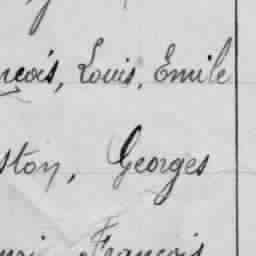 nçois, Louis, Emile
ston, Georges
François